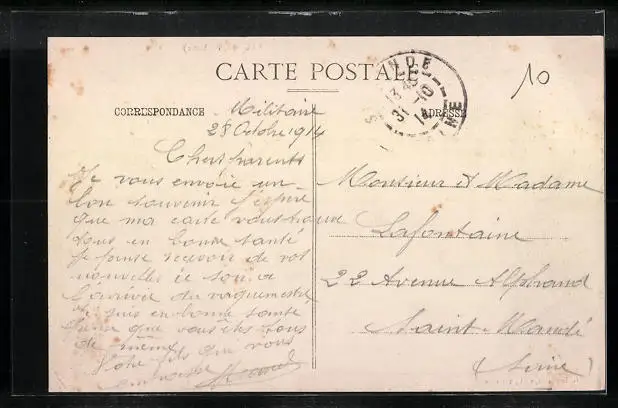 CARTE POSTALE
CORRESPONDANCE
Militaire
28 Octobre 1914
Chers parents
Je vous envoie un
bon souvenir J'espère
que ma carte vous trouve
tous en bonne santé
Je pense recevoir de vos
nouvelles ce soir a
l'arrivée du vaguemestre
Je suis en bonne santé
que vous êtes tous
de même
Votre fils qui vous
embrasse
10
13
31 - 10
14
ADRESSE
Monsieur et Madame
Lafontaine
22 Avenue Alphand
Saint-Mandé
(Seine)